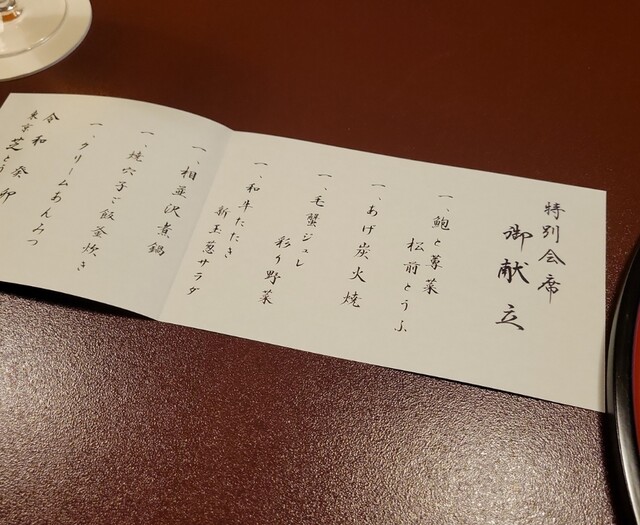 特別会席
御献立
一、鮑と蓴菜
松前とうふ
一、あげ炭火焼
一、毛蟹ジュレ
彩り野菜
一、和牛たたき
新玉葱サラダ
一、相並沢煮鍋
一、焼穴子ご飯釜炊き
一、クリームあんみつ
令和 癸卯
東京芝とうふ